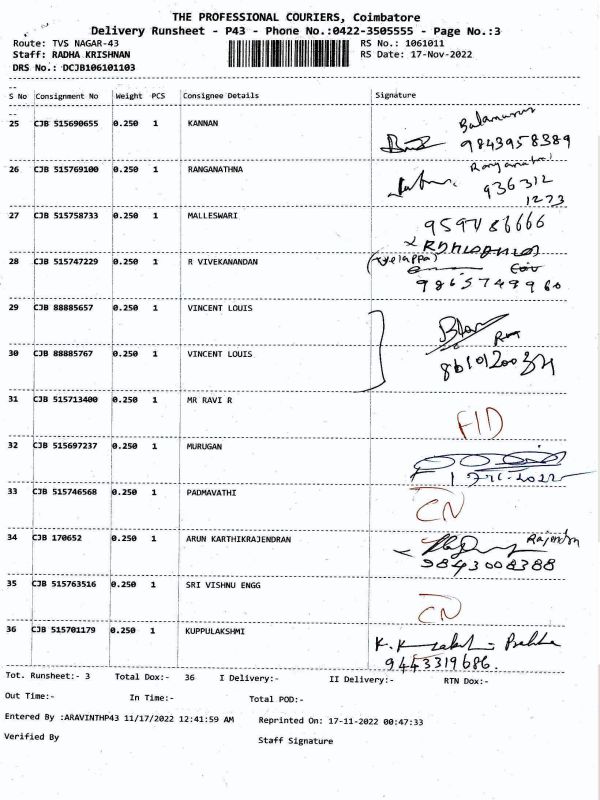 THE PROFESSIONAL COURIERS, Coimbatore
Delivery Runsheet - P43 - Phone No.:0422-3505555 - Page No.:3
Route: TVS NAGAR-43 RS No.: 1061011
Staff: RADHA KRISHNAN RS Date: 17-Nov-2022
DRS No.: DCJB106101103
S No Consignment No Weight PCS Consignee Details Signature
25 CJB 515690655 0.250 1 KANNAN
9843958389
26 CJB 515769100 0.250 1 RANGANATHNA
936312
1273
27 CJB 515758733 0.250 1 MALLESWARI
28 CJB 515747229 0.250 1 R VIVEKANANDAN
9865749960
29 CJB 88885657 0.250 1 VINCENT LOUIS
30 CJB 88885767 0.250 1 VINCENT LOUIS
31 CJB 515713400 0.250 1 MR RAVI R
FID
32 CJB 515697237 0.250 1 MURUGAN
33 CJB 515746568 0.250 1 PADMAVATHI
CN
34 CJB 170652 0.250 1 ARUN KARTHIKRAJENDRAN
9843008388
35 CJB 515763516 0.250 1 SRI VISHNU ENGG
CN
36 CJB 515701179 0.250 1 KUPPULAKSHMI
9443319686.
Tot. Runsheet:- 3 Total Dox:- 36 I Delivery:- II Delivery:- RTN Dox:-
Out Time:- In Time:- Total POD:-
Entered By :ARAVINTHP43 11/17/2022 12:41:59 AM Reprinted On: 17-11-2022 00:47:33
Verified By Staff Signature